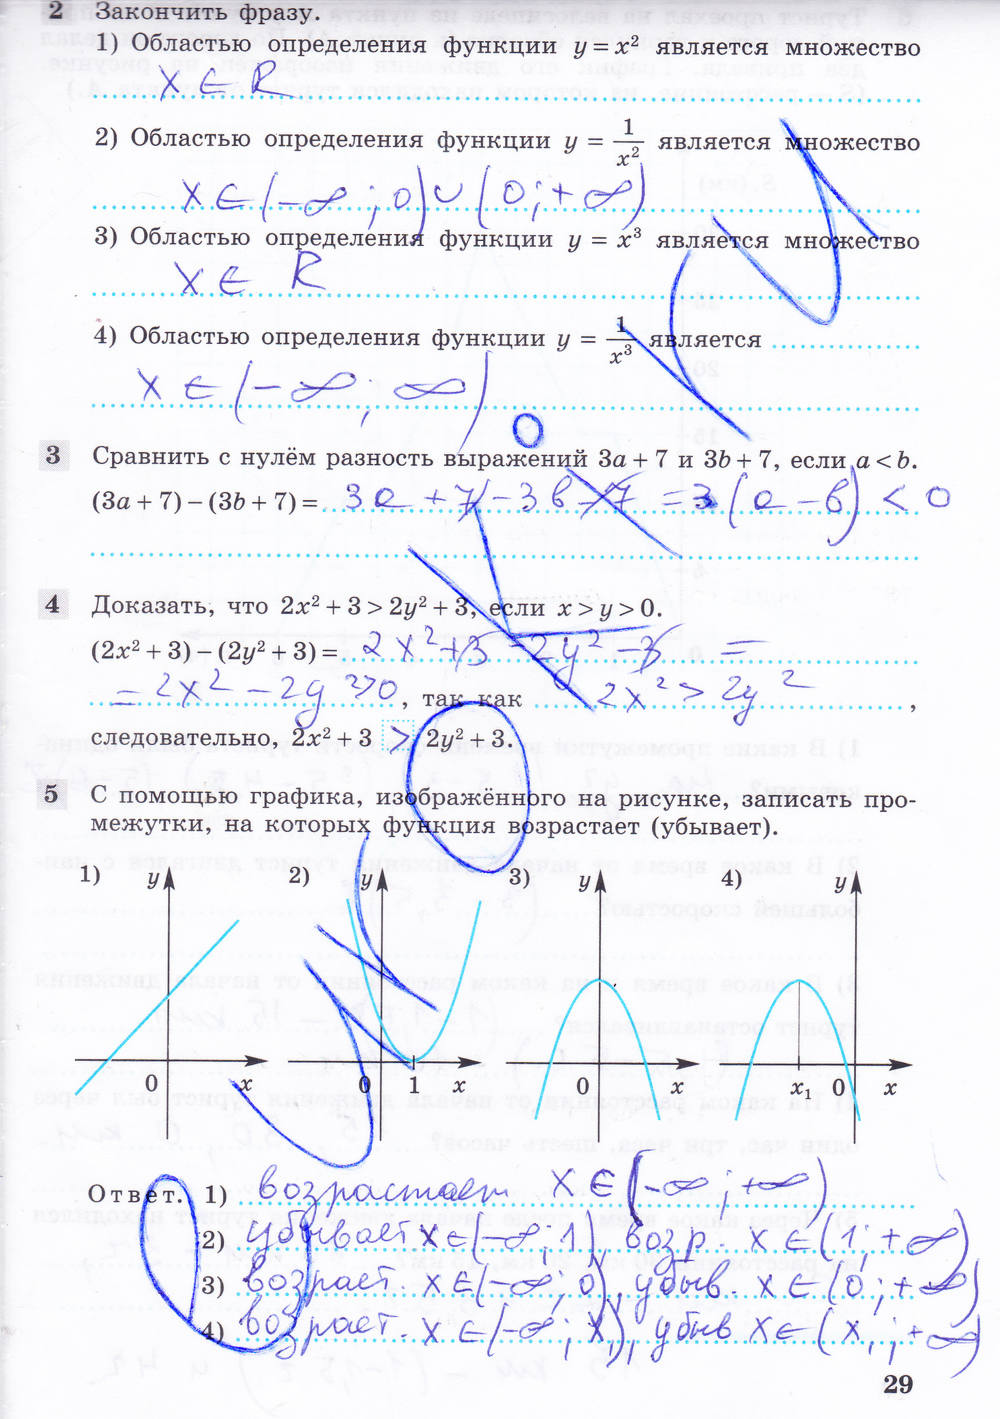 2 Закончить фразу.
1) Областью определения функции y = x² является множество
x ∈ R
2) Областью определения функции y = 1/x² является множество
x ∈ (-∞; 0) ∪ (0; +∞)
3) Областью определения функции y = x³ является множество
x ∈ R
4) Областью определения функции y = 1/x³ является
x ∈ (-∞; ∞)
0
3 Сравнить с нулём разность выражений 3a + 7 и 3b + 7, если a < b.
(3a + 7) – (3b + 7) = 3a + 7 - 3b - 7 = 3(a - b) < 0
4 Доказать, что 2x² + 3 > 2y² + 3, если x > y > 0.
(2x² + 3) – (2y² + 3) = 2x² + 3 - 2y² - 3 =
= 2x² - 2y² > 0, так как 2x² > 2y²,
следовательно, 2x² + 3 > 2y² + 3.
5 С помощью графика, изображённого на рисунке, записать про-
межутки, на которых функция возрастает (убывает).
1) y 2) y 3) y 4) y
0 x 0 1 x 0 x x₁ 0 x
Ответ. 1) возрастает x ∈ (-∞; +∞)
2) убывает x ∈ (-∞; 1), возр. x ∈ (1; +∞)
3) возраст. x ∈ (-∞; 0), убыв. x ∈ (0; +∞)
4) возраст. x ∈ (-∞; x), убыв x ∈ (x,; +∞)
29